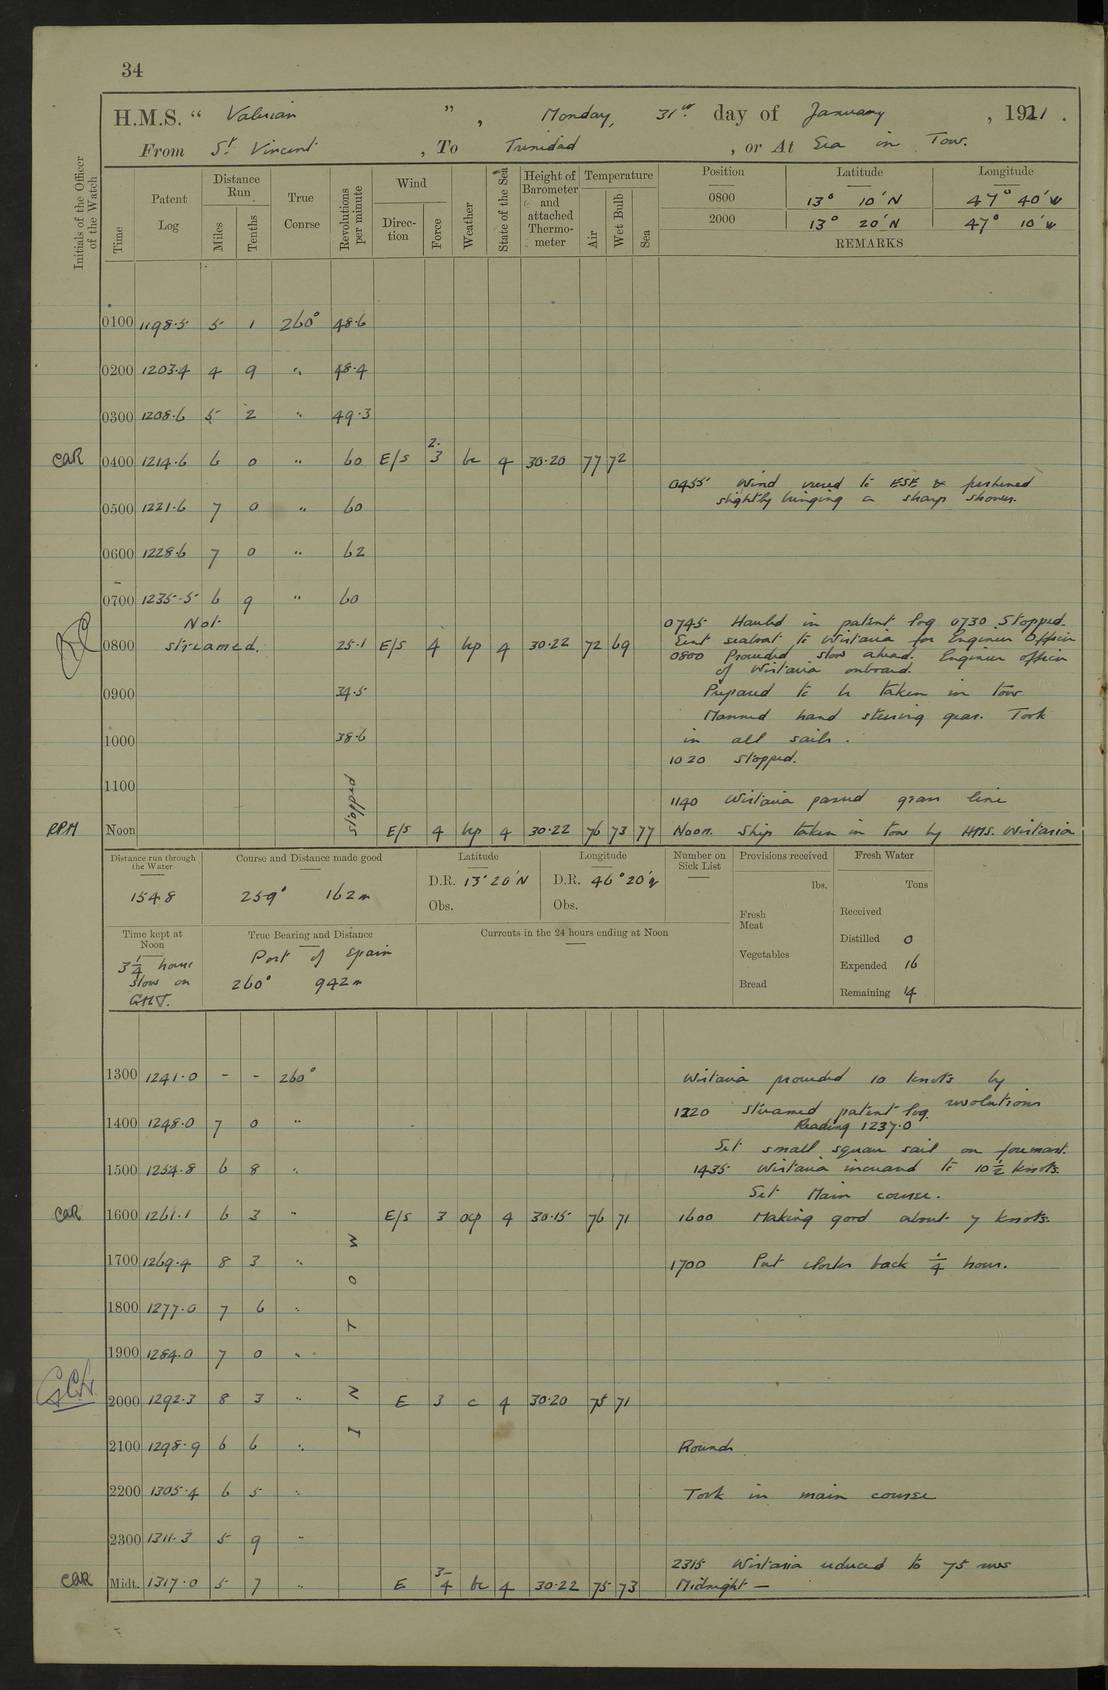 34
H.M.S. “ Valerian ”, Monday, 31st day of January, 1921.
From St. Vincent, To Trinidad, or At Sea in Tow.
Initials of the Officer of the Watch
Time
Patent Log
Distance Run
Miles
Tenths
True Course
Revolutions per minute
Wind
Direction
Force
Weather
State of the Sea
Height of Barometer and attached Thermometer
Temperature
Air
Wet Bulb
Sea
Position Latitude Longitude
0800 13° 10´N 47° 40´W
2000 13° 20´N 47° 10´W
REMARKS
0100 1198·5 5 1 260° 48·6
0200 1203·4 4 9 " 48·4
0300 1208·6 5 2 " 49·3
CAR 0400 1214·6 6 0 " 60 E/S 2·3 bc 4 30·20 77 72
0455 Wind veered to ESE & freshened
slightly bringing a sharp shower.
0500 1221·6 7 0 " 60
0600 1228·6 7 0 " 62
0700 1235·5 6 9 " 60
0745 Hauled in patent log 0730 Stopped.
Not streamed.
0800 25·1 E/S 4 bcp 4 30·22 72 69 Sent seaboat to Wistaria for Engineer Officer
0800 Proceeded slow ahead. Engineer officer
of Wistaria onboard.
0900 34·5 Prepared to be taken in tow
Manned hand steering gear. Took
1000 38·6 in all sails.
1020 Stopped.
1100 stopped
1140 Wistaria passed grass line
RPM Noon E/S 4 bcp 4 30·22 76 73 77 Noon. Ship taken in tow by HMS. Wistaria
Distance run through the Water
154·8
Course and Distance made good
259° 162m
Latitude
D.R. 13° 20´N
Obs.
Longitude
D.R. 46° 20´W
Obs.
Number on Sick List
Provisions received
lbs.
Fresh Meat
Vegetables
Bread
Fresh Water
Tons
Received
Distilled 0
Expended 16
Remaining 4
Time kept at Noon
3 1/4 hours
slow on
GMT.
True Bearing and Distance
Port of Spain
260° 942m
Currents in the 24 hours ending at Noon
1300 1241·0 - - 260° Wistaria proceeded 10 knots by
revolutions
1220 streamed patent log.
Reading 1237·0
1400 1248·0 7 0 "
Set small square sail on foremast.
1500 1254·8 6 8 " 1435 Wistaria increased to 10 1/2 knots.
Set Main course.
CAR 1600 1261·1 6 3 " E/S 3 ocp 4 30·15 76 71 1600 Making good about 7 knots.
1700 1269·4 8 3 " 1700 Put clocks back 1/4 hour.
1800 1277·0 7 6 "
1900 1284·0 7 0 "
2000 1292·3 8 3 " E 3 c 4 30·20 75 71
IN TOW
2100 1298·9 6 6 " Rounds
2200 1305·4 6 5 " Took in main course
2300 1311·3 5 9 "
2315 Wistaria reduced to 75 revs
CAR Midt. 1317·0 5 7 " E 3–4 bc 4 30·22 75 73 Midnight —